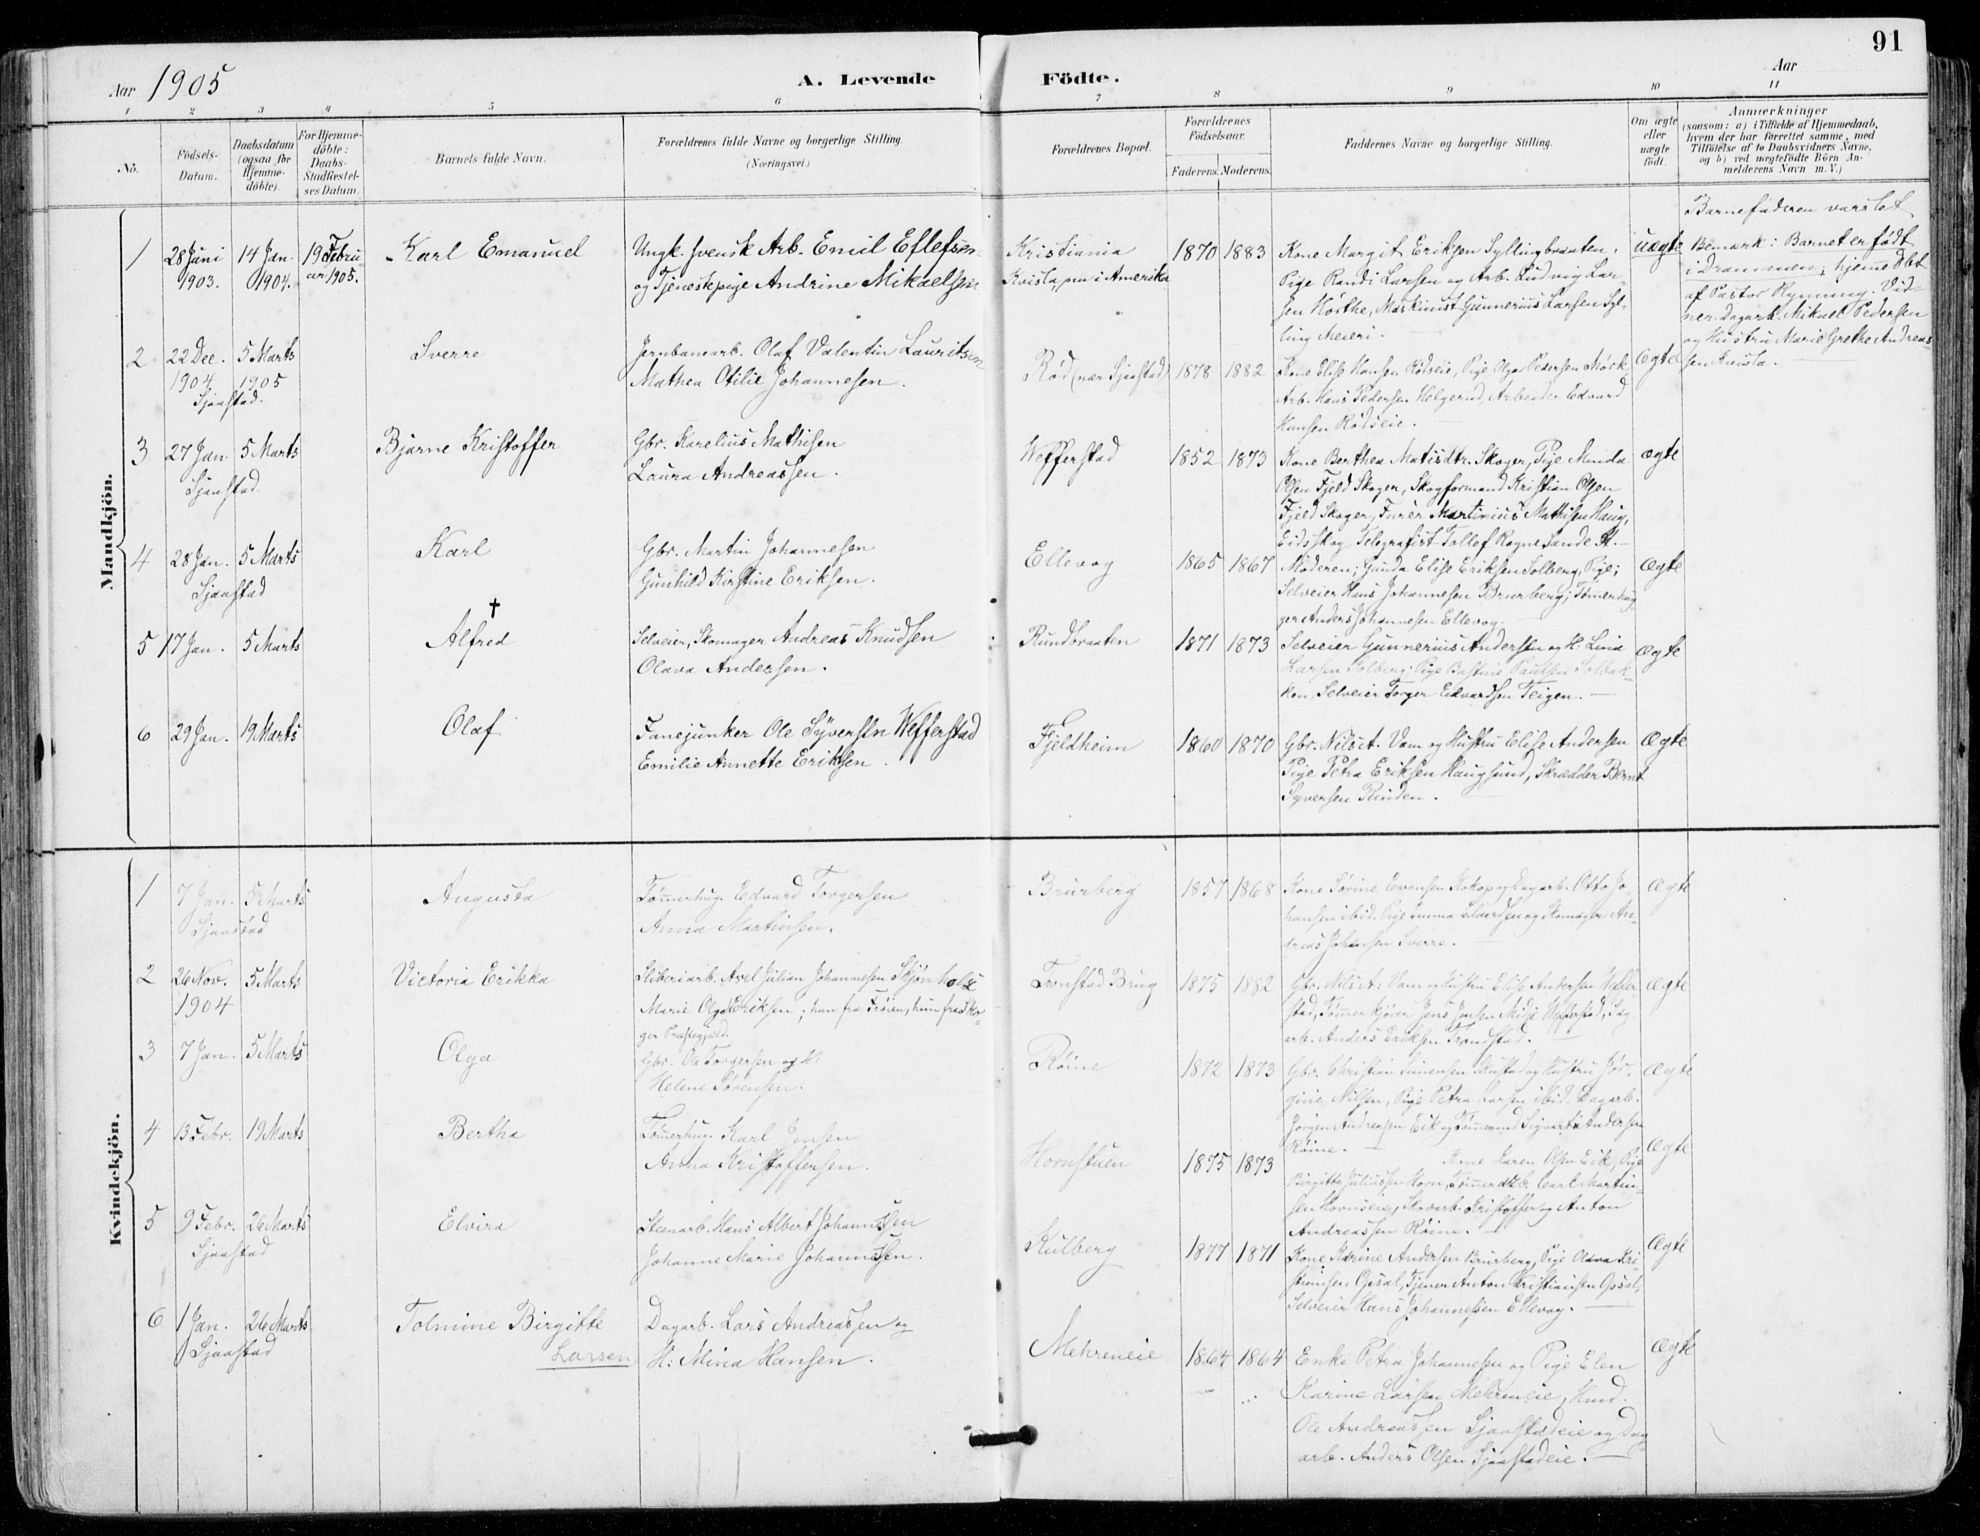 91
Aar 1905
A. Levende Födte.
Aar
1 2 3 4 5 6 7 8 9 10 11
No.
Födsels-Datum.
Daabsdatum (ogsaa for Hjemme-döbte).
For Hjemme-döbte: Daabs-Stadfæstel-ses Datum.
Barnets fulde Navn.
Forældrenes fulde Navne og borgerlige Stilling (Næringsvei)
Forældrenes Bopæl.
Forældrenes Födselsaar.
Faderens. Moderens.
Faddernes Navne og borgerlige Stilling.
Om ægte eller uægte födt.
Anmærkninger
(saasom: a) i Tilfælde af Hjemmedaab,
hvem der har forrettet samme, med
Tilföielse af to Daabsvidners Navne,
og b) ved uægtefödte Börn An-
melderens Navn m. V.)
Mandkjön.
1 28 Juni 1903. 14 Jan. 1904. 19 Februar 1905.
Karl Emanuel
Ungk. svensk Arb. Emil Eflefsen
og Tjenestepige Andrine Mikaelsen
Kristiania
i Amerika
1870 1883
Kone Margit Eriksen Syllingbraaten,
Pige Randi Larsen og Arb. Ludvig Lar-
sen Hörthe, Maskinist Gunnerius Larsen Syl-
ling Meieri.
uægte
Barnefaderen
Bemærk: Barnet er født
i Drammen; hjemmedøbt
af Pastor Rynning. Vid-
ner: Dagarb. Mikael Pedersen
og Hustru Marie Grethe Andreas-
sen
2 22 Dec. 1904 5 Marts 1905
Sjaastad.
Sverre
Jernbanearb. Olaf Valentin Lauritsen
Mathea Otilie Johannesen.
Rød (nær Sjaastad)
1878 1882
Kone Elise Hansen Rødseie, Pige Olga Pedersen Mörk,
Arb. Hans Pedersen Helgerud, Arbeider Edvard
Hansen Rødseie.
Ægte
3 27 Jan. 5 Marts
Sjaastad
Bjarne Kristoffer
Gbr. Karelius Mathisen
Laura Andreassen.
Wefferstad
1852 1873
Kone Berthea Matisdtr. Skoger, Pige Minda
Olsen Fjeld Skoger, Skogformand Kristian Olsen
Fjeld Skoger, Furer Martinius Mathisen Haug,
Eidsskog, Telegrafist Tollef Rogne Sande St.
ægte
4 28 Jan. 5 Marts
Sjaastad
Karl
Gbr. Martin Johannesen
Gunhild Kirstine Eriksen.
Ellevog
1865 1867
Moderen; Gunda Elise Eriksen Solberg, Pige;
Selveier Hans Johannesen Brurberg; Tømerhug
ger Anders Johannesen Ellevog.
Ægte
5 17 Jan. 5 Marts
Alfred †
Selveier, Skomager Andreas Knudsen
Olava Andersen.
Rundbraaten
1871 1873
Selveier Gunnerius Andersen og H: Lina
Larsen Solberg; Pige Bastine Paulsen Solbak-
ken, Selveier Torger Edvardsen Teigen.
ægte
6 29 Jan. 19 Marts
Olaf
Fanejunker Ole Syversen Wefferstad
Emilie Annette Eriksen.
Fjeldheim
1860 1870
Gbr. Nils A. Vam og Hustru Elise Andersen
Pige Petra Eriksen Haugsund, Skrædder Bernt
Syversen Runden.
Ægte
Kvindekjön.
1 7 Jan. 5 Marts
Sjaastad
Augusta
Tømmerhug. Edvard Torgersen
Anna Martinsen.
Brurberg
1857 1868
Kone Sørine Evensen Kokop og Dagarb. Otto Jo-
hansen ibid. Pige Emma Edvardsen og Skomager An-
dreas Johansen Sverre.
Ægte
2 26 Nov. 1904 5 Marts
Victoria Erikka
Sliberiarb. Axel Julian Johannesen Skjönhols
Marie Olga Eriksen; han fra Trøien, hun fra Sko-
ger Præstegjæld.
Tronstad Brug
1875 1882
Gbr. Nils A. Vam og Hustru Elise Andersen Weffer-
stad, Tömmerkjører Jens Jensen Wefferstad, Dag-
arb. Anders Eriksen Trondstad.
Ægte
3 7 Jan. 5 Marts
Olga
Gbr. Ole Torgersen og H:
Helene Sørensen.
Röine
1872 1873
Gbr. Christian Simensen Skustad og Hustru Jör-
gine Nilsen, Pige Petra Larsen ibid. Dagarb.
Jørgen Andreasen Eik og Tømmermd Sigvart Andersen
Röine.
Ægte
4 13 Febr. 19 Marts
Bertha
Tømerhug. Karl Jensen
Anna Kristoffersen.
Hornstuen
1875 1873
Kone Karen Olsen Eik, Pige
Birgitte Juliussen Horn, Carl Martin-
sen Hornseie, Skovarb. Kristoffer og Anton
Andreassen Röine.
Ægte
5 9 Febr. 26 Marts
Sjaastad
Elvira
Steenarb. Hans Albert Johannesen
Johanne Marie Johannesen.
Kulberg
1877 1871
Kone Karine Andersen Brurberg, Pige Olava Kri-
stiansen Opsal, Tjener Anton Kristiansen Opsal,
Selveier Hans Johannessen Ellevog.
Ægte
6 1 Jan. 26 Marts
Sjaastad
Tolmine Birgitte
Larsen
Dagarb. Lars Andreassen og
H: Mina Hansen.
Mehreneie
1864 1864
Enke Petra Johannesen og Pige Elen
Karine Larsen Mehreneie,
Ole Andreassen Sjaastadeie og Dag
arb. Anders Olsen Sjaastadeie.
Ægte